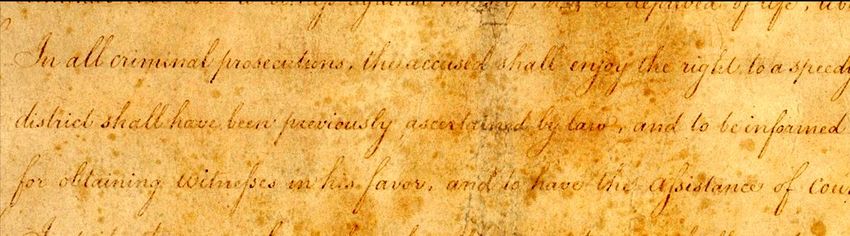 be deprived of life,
In all criminal prosecutions, the accused shall enjoy the right to a speedy
district shall have been previously ascertained by law, and to be informed
for obtaining witneſses in his favor, and to have the Aſsistance of Coun